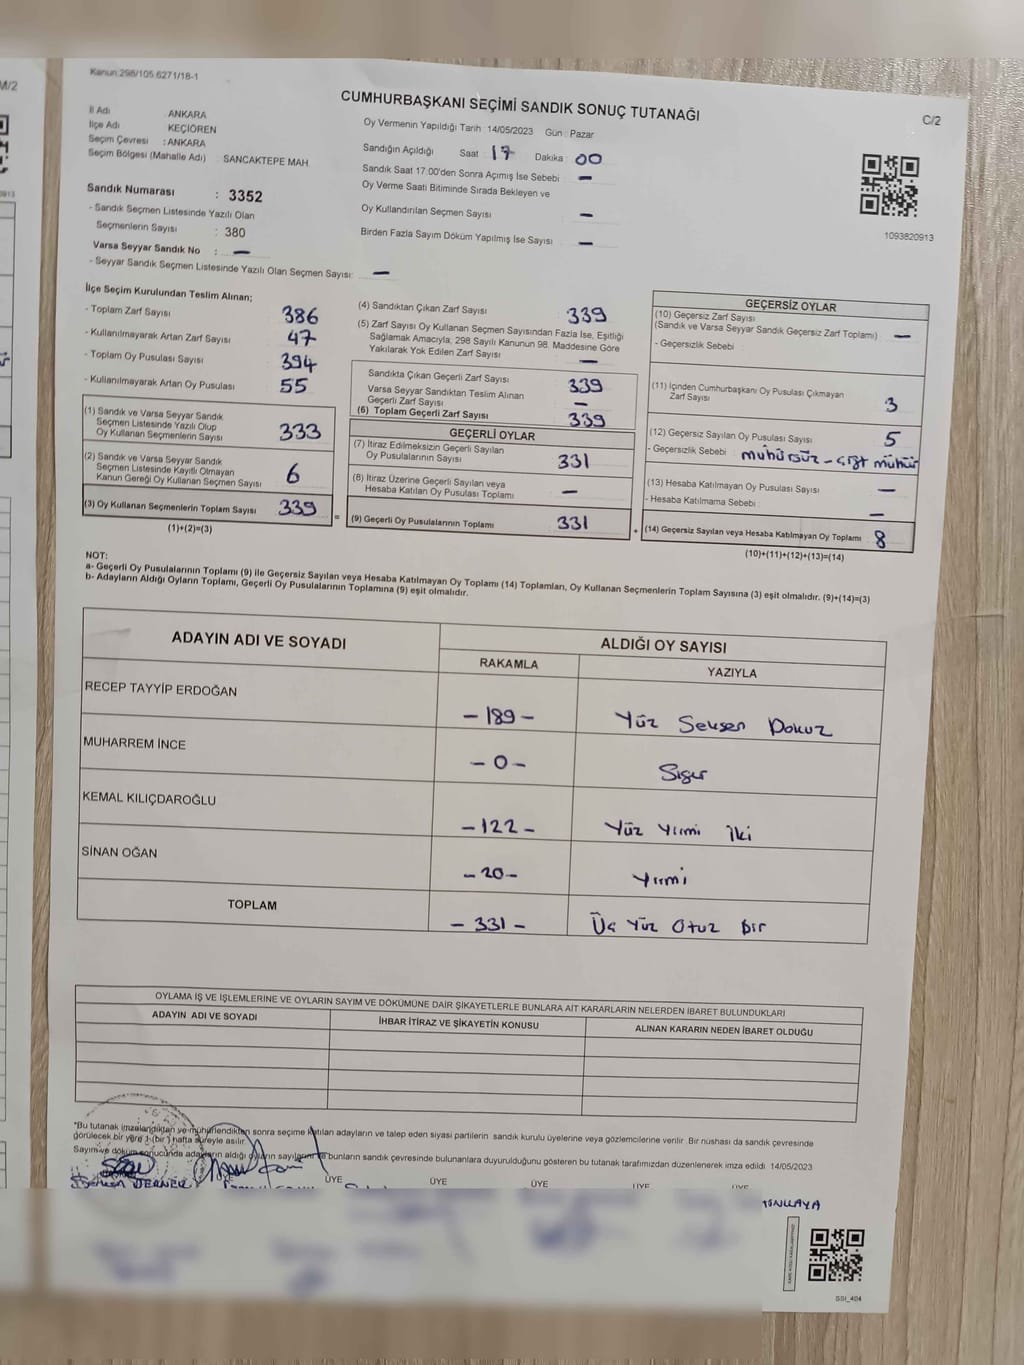 M/2
Kanun:298/105.6271/18-1
CUMHURBAŞKANI SEÇİMİ SANDIK SONUÇ TUTANAĞI
C/2
İl Adı : ANKARA
İlçe Adı KEÇİÖREN
Seçim Çevresi : ANKARA
Seçim Bölgesi (Mahalle Adı) SANCAKTEPE MAH
Sandık Numarası : 3352
- Sandık Seçmen Listesinde Yazılı Olan
Seçmenlerin Sayısı : 380
Varsa Seyyar Sandık No : —
- Seyyar Sandık Seçmen Listesinde Yazılı Olan Seçmen Sayısı: —
Oy Vermenin Yapıldığı Tarih 14/05/2023 Gün : Pazar
Sandığın Açıldığı Saat 17 Dakika 00
Sandık Saat 17.00'den Sonra Açımış İse Sebebi —
Oy Verme Saati Bitiminde Sırada Bekleyen ve
Oy Kullandırılan Seçmen Sayısı —
Birden Fazla Sayım Döküm Yapılmış İse Sayısı —
1093820913
İlçe Seçim Kurulundan Teslim Alınan;
- Toplam Zarf Sayısı 386
- Kullanılmayarak Artan Zarf Sayısı 47
- Toplam Oy Pusulası Sayısı 394
- Kullanılmayarak Artan Oy Pusulası 55
(1) Sandık ve Varsa Seyyar Sandık
Seçmen Listesinde Yazılı Olup
Oy Kullanan Seçmenlerin Sayısı 333
(2) Sandık ve Varsa Seyyar Sandık
Seçmen Listesinde Kayıtlı Olmayan
Kanun Gereği Oy Kullanan Seçmen Sayısı 6
(3) Oy Kullanan Seçmenlerin Toplam Sayısı 339
(1)+(2)=(3)
(4) Sandıktan Çıkan Zarf Sayısı 339
(5) Zarf Sayısı Oy Kullanan Seçmen Sayısından Fazla İse, Eşitliği
Sağlamak Amacıyla, 298 Sayılı Kanunun 98. Maddesine Göre
Yakılarak Yok Edilen Zarf Sayısı —
Sandıkta Çıkan Geçerli Zarf Sayısı 339
Varsa Seyyar Sandıktan Teslim Alınan
Geçerli Zarf Sayısı —
(6) Toplam Geçerli Zarf Sayısı 339
GEÇERLİ OYLAR
(7) İtiraz Edilmeksizin Geçerli Sayılan
Oy Pusulalarının Sayısı 331
(8) İtiraz Üzerine Geçerli Sayılan veya
Hesaba Katılan Oy Pusulası Toplamı —
=
(9) Geçerli Oy Pusulalarının Toplamı 331
GEÇERSİZ OYLAR
(10) Geçersiz Zarf Sayısı
(Sandık ve Varsa Seyyar Sandık Geçersiz Zarf Toplamı) —
- Geçersizlik Sebebi
(11) İçinden Cumhurbaşkanı Oy Pusulası Çıkmayan
Zarf Sayısı 3
(12) Geçersiz Sayılan Oy Pusulası Sayısı 5
- Geçersizlik Sebebi mühürsüz - çift mühür
(13) Hesaba Katılmayan Oy Pusulası Sayısı —
- Hesaba Katılmama Sebebi —
+ (14) Geçersiz Sayılan veya Hesaba Katılmayan Oy Toplamı 8
(10)+(11)+(12)+(13)=(14)
NOT:
a- Geçerli Oy Pusulalarının Toplamı (9) ile Geçersiz Sayılan veya Hesaba Katılmayan Oy Toplamı (14) Toplamları, Oy Kullanan Seçmenlerin Toplam Sayısına (3) eşit olmalıdır. (9)+(14)=(3)
b- Adayların Aldığı Oyların Toplamı, Geçerli Oy Pusulalarının Toplamına (9) eşit olmalıdır.
ADAYIN ADI VE SOYADI
ALDIĞI OY SAYISI
RAKAMLA YAZIYLA
RECEP TAYYİP ERDOĞAN - 189 - Yüz Seksen Dokuz
MUHARREM İNCE - 0 - Sıfır
KEMAL KILIÇDAROĞLU - 122 - Yüz Yirmi İki
SİNAN OĞAN - 20 - Yirmi
TOPLAM - 331 - Üç Yüz Otuz Bir
OYLAMA İŞ VE İŞLEMLERİNE VE OYLARIN SAYIM VE DÖKÜMÜNE DAİR ŞİKAYETLERLE BUNLARA AİT KARARLARIN NELERDEN İBARET BULUNDUKLARI
ADAYIN ADI VE SOYADI İHBAR İTİRAZ VE ŞİKAYETİN KONUSU ALINAN KARARIN NEDEN İBARET OLDUĞU
*Bu tutanak imzalandıktan ve mühürlendikten sonra seçime katılan adayların ve talep eden siyasi partilerin sandık kurulu üyelerine veya gözlemcilerine verilir. Bir nushası da sandık çevresinde
görülecek bir yere 1 (bir) hafta süreyle asılır.
Sayım ve döküm sonucunda adayların aldığı oyların sayılarını ve bunların sandık çevresinde bulunanlara duyurulduğunu gösteren bu tutanak tarafımızdan düzenlenerek imza edildi 14/05/2023
ÜYE ÜYE ÜYE ÜYE ÜYE
SSI_404